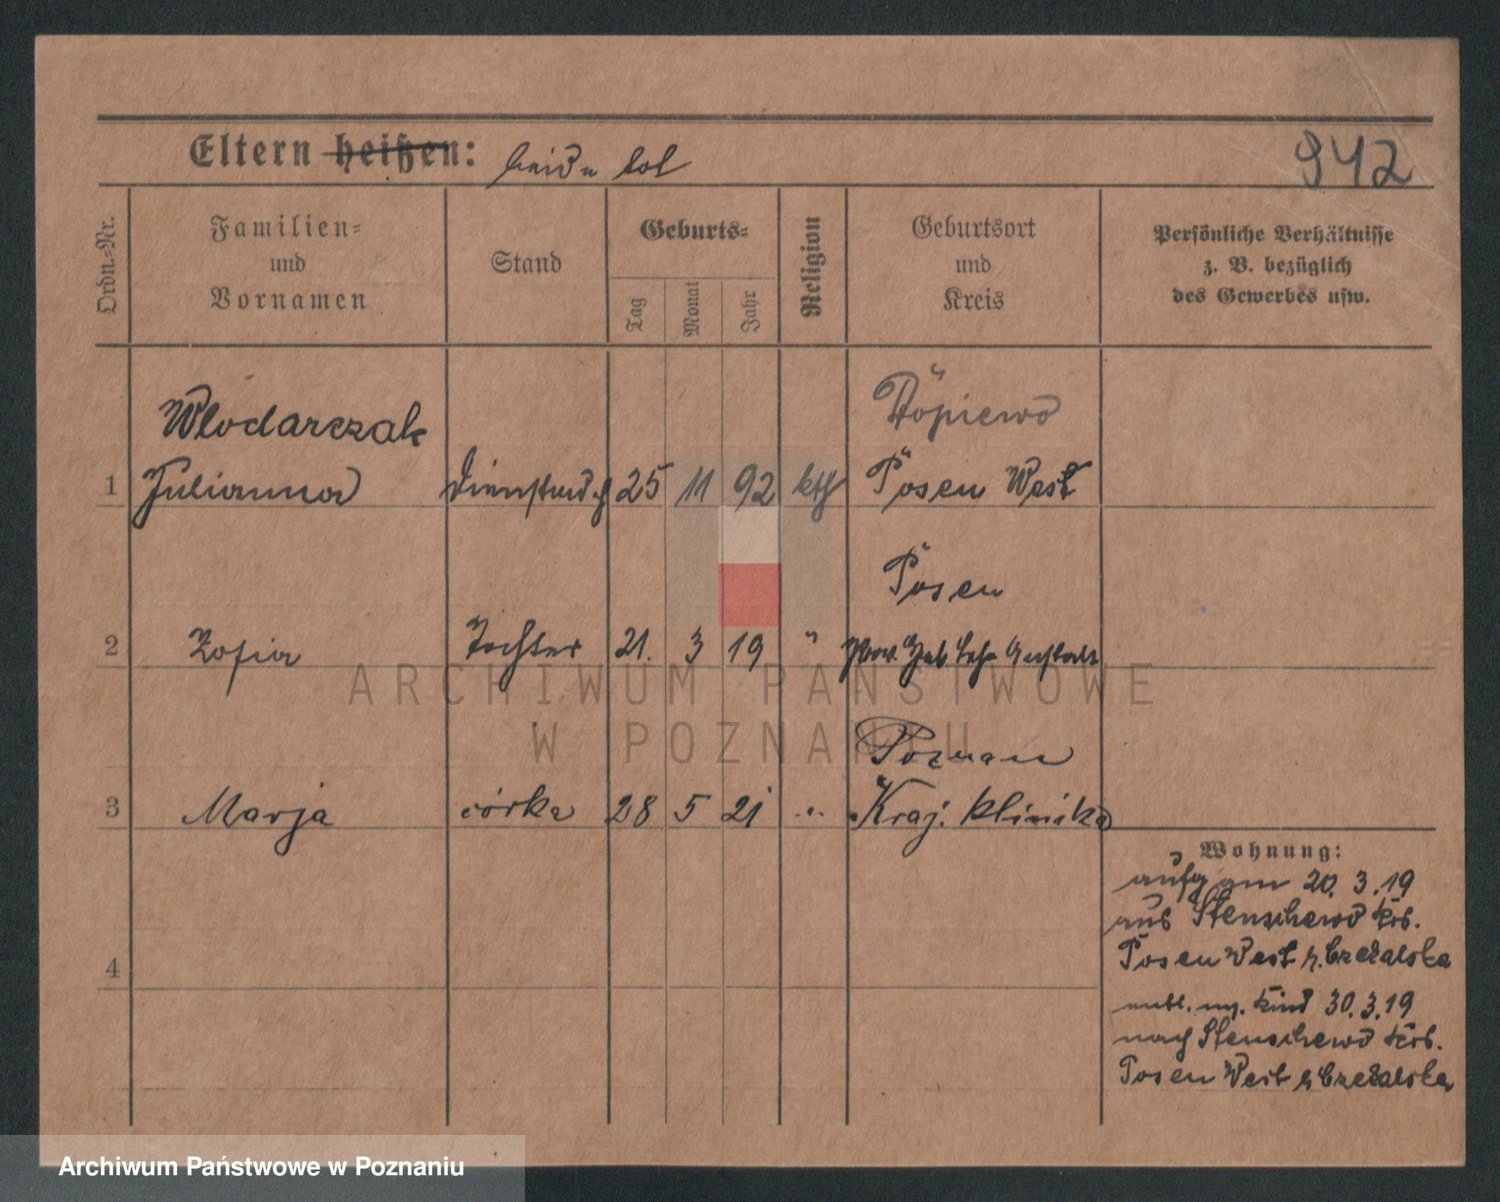 Eltern heißen: beide tot
942
Ordn.-Nr.
Familien-
und
Vornamen
Stand
Geburts-
Tag
Monat
Jahr
Religion
Geburtsort
und
Kreis
Persönliche Verhältnisse
z. B. bezüglich
des Gewerbes usw.
Wlodarczak
Dopiewo
1 Julianna Dienstmd. 25 11 92 kth Posen West
Posen
2 Zofia Tochter 21. 3 19 " Prov. Heb Lehr Anstalt
Poznan
3 Marja córka 28 5 21 " Kraj. klinika
4
Wohnung:
aufg am 20. 3. 19
aus Stenschewo Krs.
Posen West
entl. m. Kind 30. 3. 19
nach Stenschewo Krs.
Posen West
ARCHIWUM PAŃSTWOWE
W POZNANIU
Archiwum Państwowe w Poznaniu